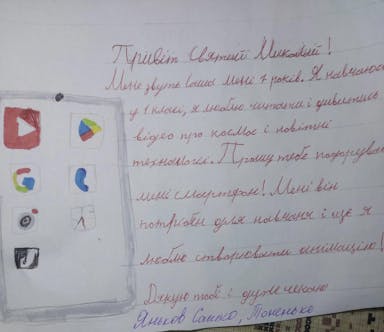 Привіт Святий Миколай!
Мене звуть Саша мені 7 років. Я навчаюся
у 1 класі, я люблю читати і дивитись
відео про космос і новітні
технології. Прошу тебе подарувати
мині смартфон! Мені він
потрібен для навчаня і ще я
люблю створювати анімацію!
Дякую тобі і дуже чекаю
Яньков Сашко,